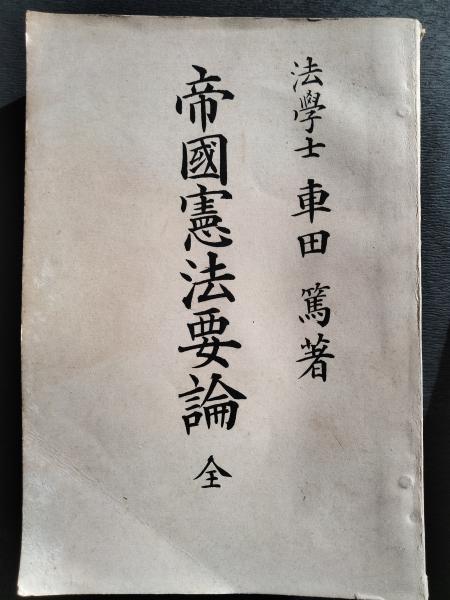 法學士 車田 篤著
帝國憲法要論 全